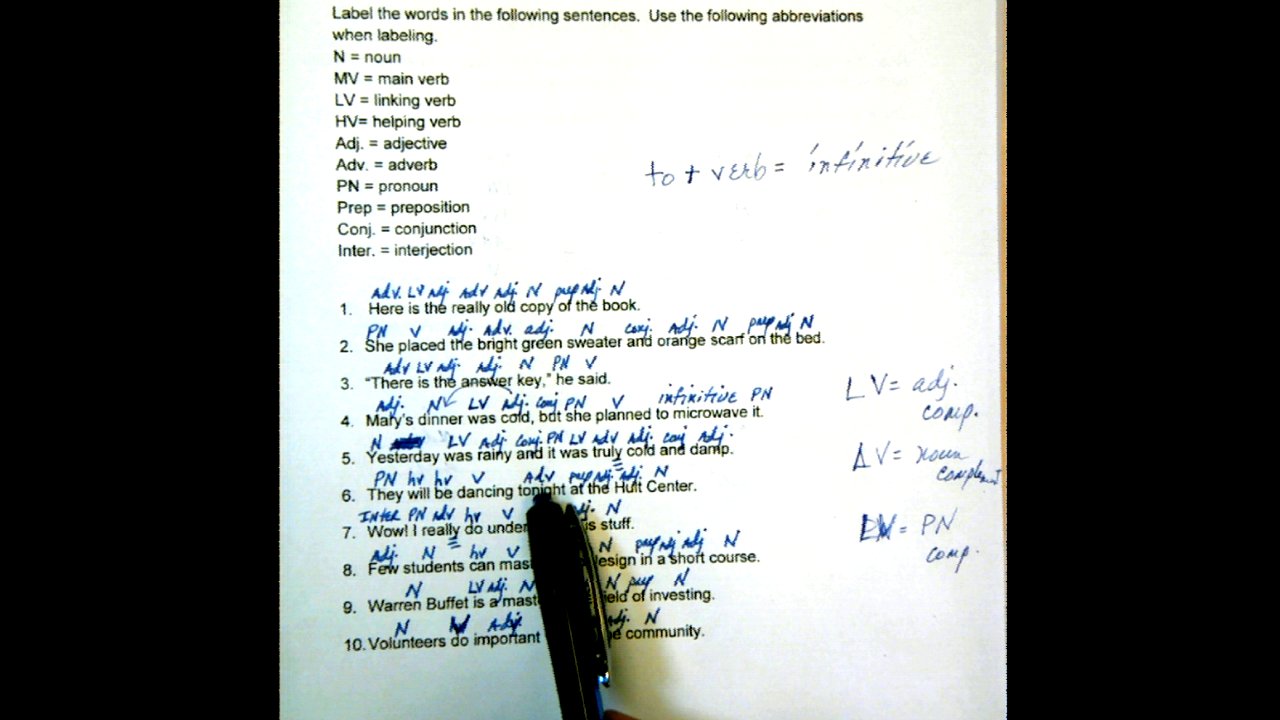 Label the words in the following sentences. Use the following abbreviations
when labeling.
N = noun
MV = main verb
LV = linking verb
HV= helping verb
Adj. = adjective
Adv. = adverb
PN = pronoun
Prep = preposition
Conj. = conjunction
Inter. = interjection
to + verb = infinitive
Adv. LV Adj. Adv Adj. N prep Adj. N
1. Here is the really old copy of the book.
PN V Adj. Adv. adj. N conj. Adj. N prep Adj N
2. She placed the bright green sweater and orange scarf on the bed.
Adv LV Adj. Adj. N PN V
3. "There is the answer key," he said.
Adj. N LV Adj. Conj PN V infinitive PN
4. Mary's dinner was cold, but she planned to microwave it.
N LV Adj Conj. PN LV Adv Adj. conj Adj.
5. Yesterday was rainy and it was truly cold and damp.
PN hv hv V Adv prep Adj. adj. N
6. They will be dancing tonight at the Hult Center.
Inter PN adv hv V N
7. Wow! I really do stuff.
Adj. N hv V N prep Adj Adj N
8. Few students can in a short course.
N LV Adj. N N prep N
9. Warren Buffet is a of investing.
N Adj. N
10. Volunteers do important community.
LV = adj.
comp.
= noun
complement
= PN
comp.